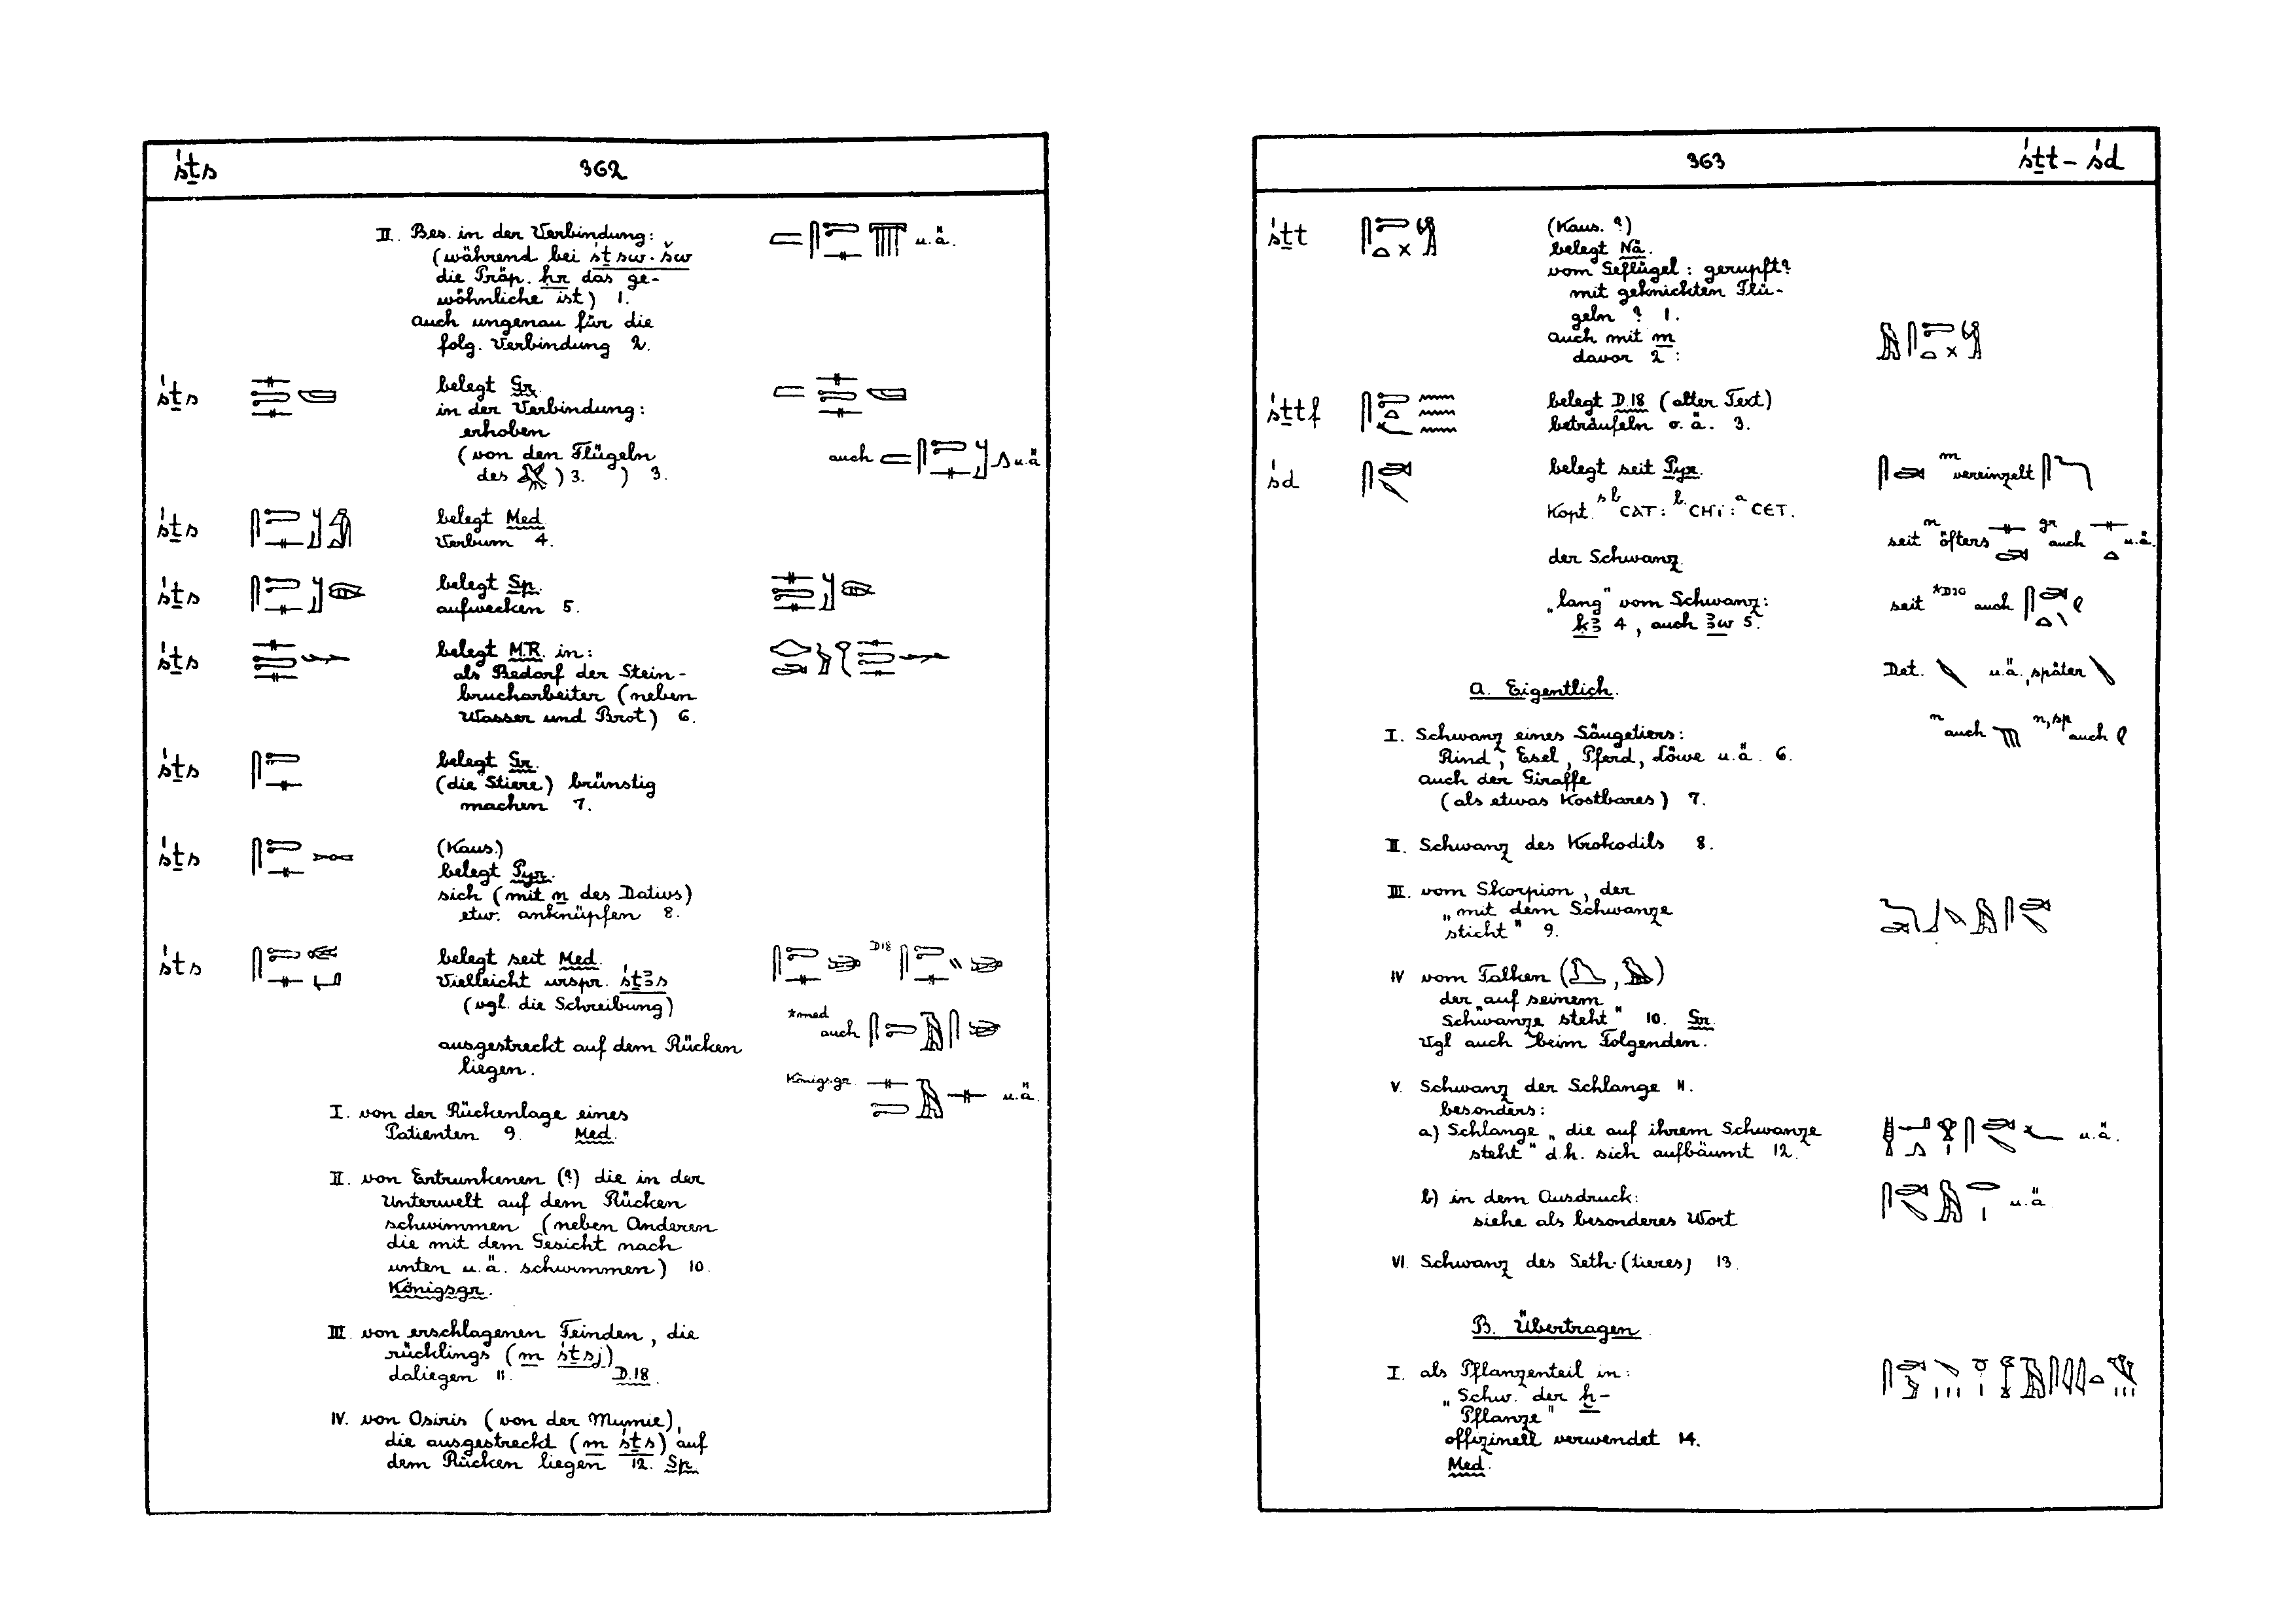 śṯs 362
II. Bes. in der Verbindung: u.ä.
(während bei śṯsw·šw
die Präp. ḥr das ge-
wöhnliche ist) 1.
auch ungenau für die
folg. Verbindung 2.
śṯs belegt Gr.
in der Verbindung:
erhoben
(von den Flügeln auch u.ä
des ) 3. ) 3.
śṯs belegt Med.
Verbum 4.
śṯs belegt Sp.
aufwecken 5.
śṯs belegt M.R. in:
als Bedarf der Stein-
brucharbeiter (neben
Wasser und Brot) 6.
śṯs belegt Gr.
(die Stiere) brünstig
machen 7.
śṯs (Kaus.)
belegt Pyr.
sich (mit n des Dativs)
etw. anknüpfen 8.
śts belegt seit Med. D18
Vielleicht urspr. śṯꜣs
(vgl. die Schreibung)
*med auch
ausgestreckt auf dem Rücken
liegen.
Königsgr. u.ä.
I. von der Rückenlage eines
Patienten 9. Med.
II. von Ertrunkenen (?) die in der
Unterwelt auf dem Rücken
schwimmen (neben Anderen
die mit dem Gesicht nach
unten u.ä. schwimmen) 10.
Königsgr.
III. von erschlagenen Feinden, die
rücklings (m śṯsj)
daliegen 11. D.18.
IV. von Osiris (von der Mumie),
die ausgestreckt (m śṯs) auf
dem Rücken liegen 12. Sp.
363 śṯt – śd
śṯt (Kaus. ?)
belegt Nä.
vom Geflügel: gerupft?
mit geknickten Flü-
geln ? 1.
auch mit m
davor 2:
śṯtf belegt D.18 (alter Text)
beträufeln o.ä. 3.
śd belegt seit Pyr. m vereinzelt
Kopt. sb CAT: b. CHT: a CET.
seit n öfters gr auch u.ä.
der Schwanz.
„lang" vom Schwanz: seit *D20 auch
kꜣ 4, auch ꜣw 5.
Det. u.ä., später
A. Eigentlich.
n auch n, sp auch
I. Schwanz eines Säugetiers:
Rind, Esel, Pferd, Löwe u.ä. 6.
auch der Giraffe
(als etwas Kostbares) 7.
II. Schwanz des Krokodils 8.
III. vom Skorpion, der
„mit dem Schwanze
sticht" 9.
IV vom Falken ( , )
der „auf seinem
Schwanze steht" 10. Gr.
Vgl auch beim Folgenden.
V. Schwanz der Schlange 11.
besonders:
a) Schlange „die auf ihrem Schwanze
steht" d.h. sich aufbäumt 12. u.ä.
b) in dem Ausdruck:
siehe als besonderes Wort u.ä
VI. Schwanz des Seth-(tieres) 13.
B. Übertragen.
I. als Pflanzenteil in:
„Schw. der ẖ-
Pflanze"
offizinell verwendet 14.
Med.